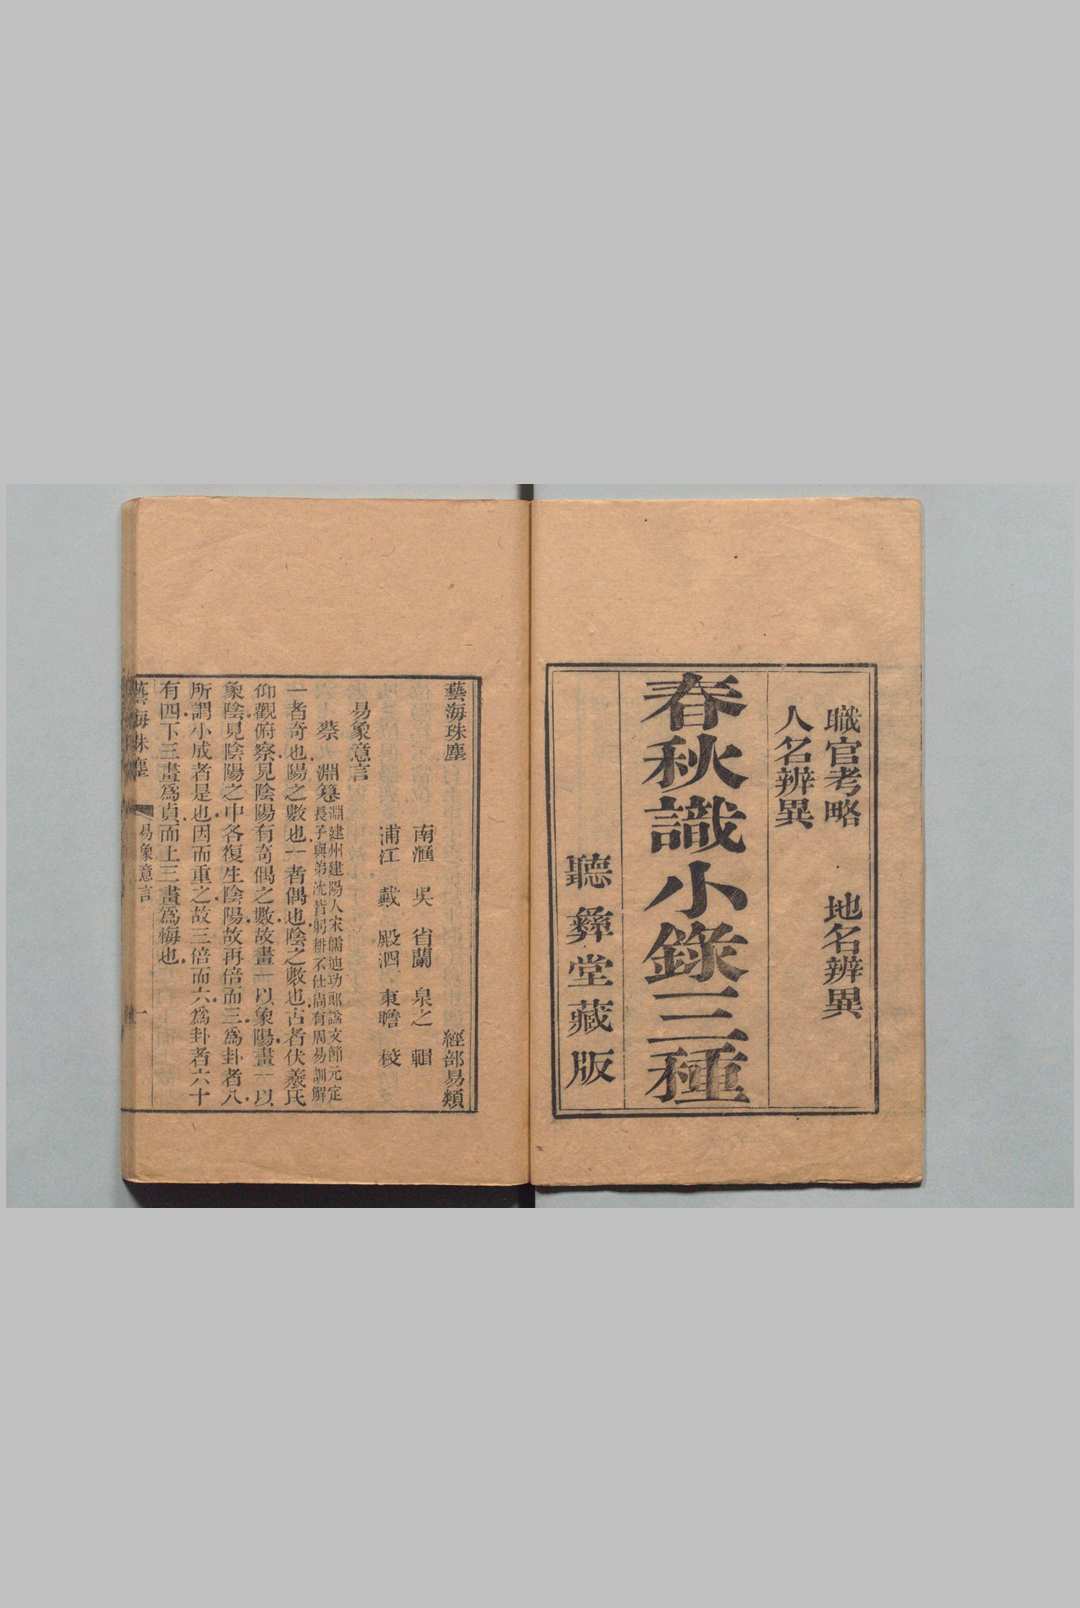 職官考略 地名辨異
人名辨異
春秋識小錄三種
聽彝堂藏版
藝海珠塵 經部易類
南滙 吳省蘭 泉之 輯
浦江 戴殿泗 東瞻 校
易象意言
蔡淵篹 淵建州建陽人宋儒迪功郎諡文節元定
長子與弟沈皆躬耕不仕尙有周易訓解
一者奇也陽之數也一者偶也陰之數也古者伏羲氏
仰觀俯察見陰陽有奇偶之數故畫一以象陽畫一以
象陰見陰陽之中各復生陰陽故再倍而三爲卦者八
所謂小成者是也因而重之故三倍而六爲卦者六十
有四下三畫爲貞而上三畫爲悔也
藝海珠塵 易象意言 一